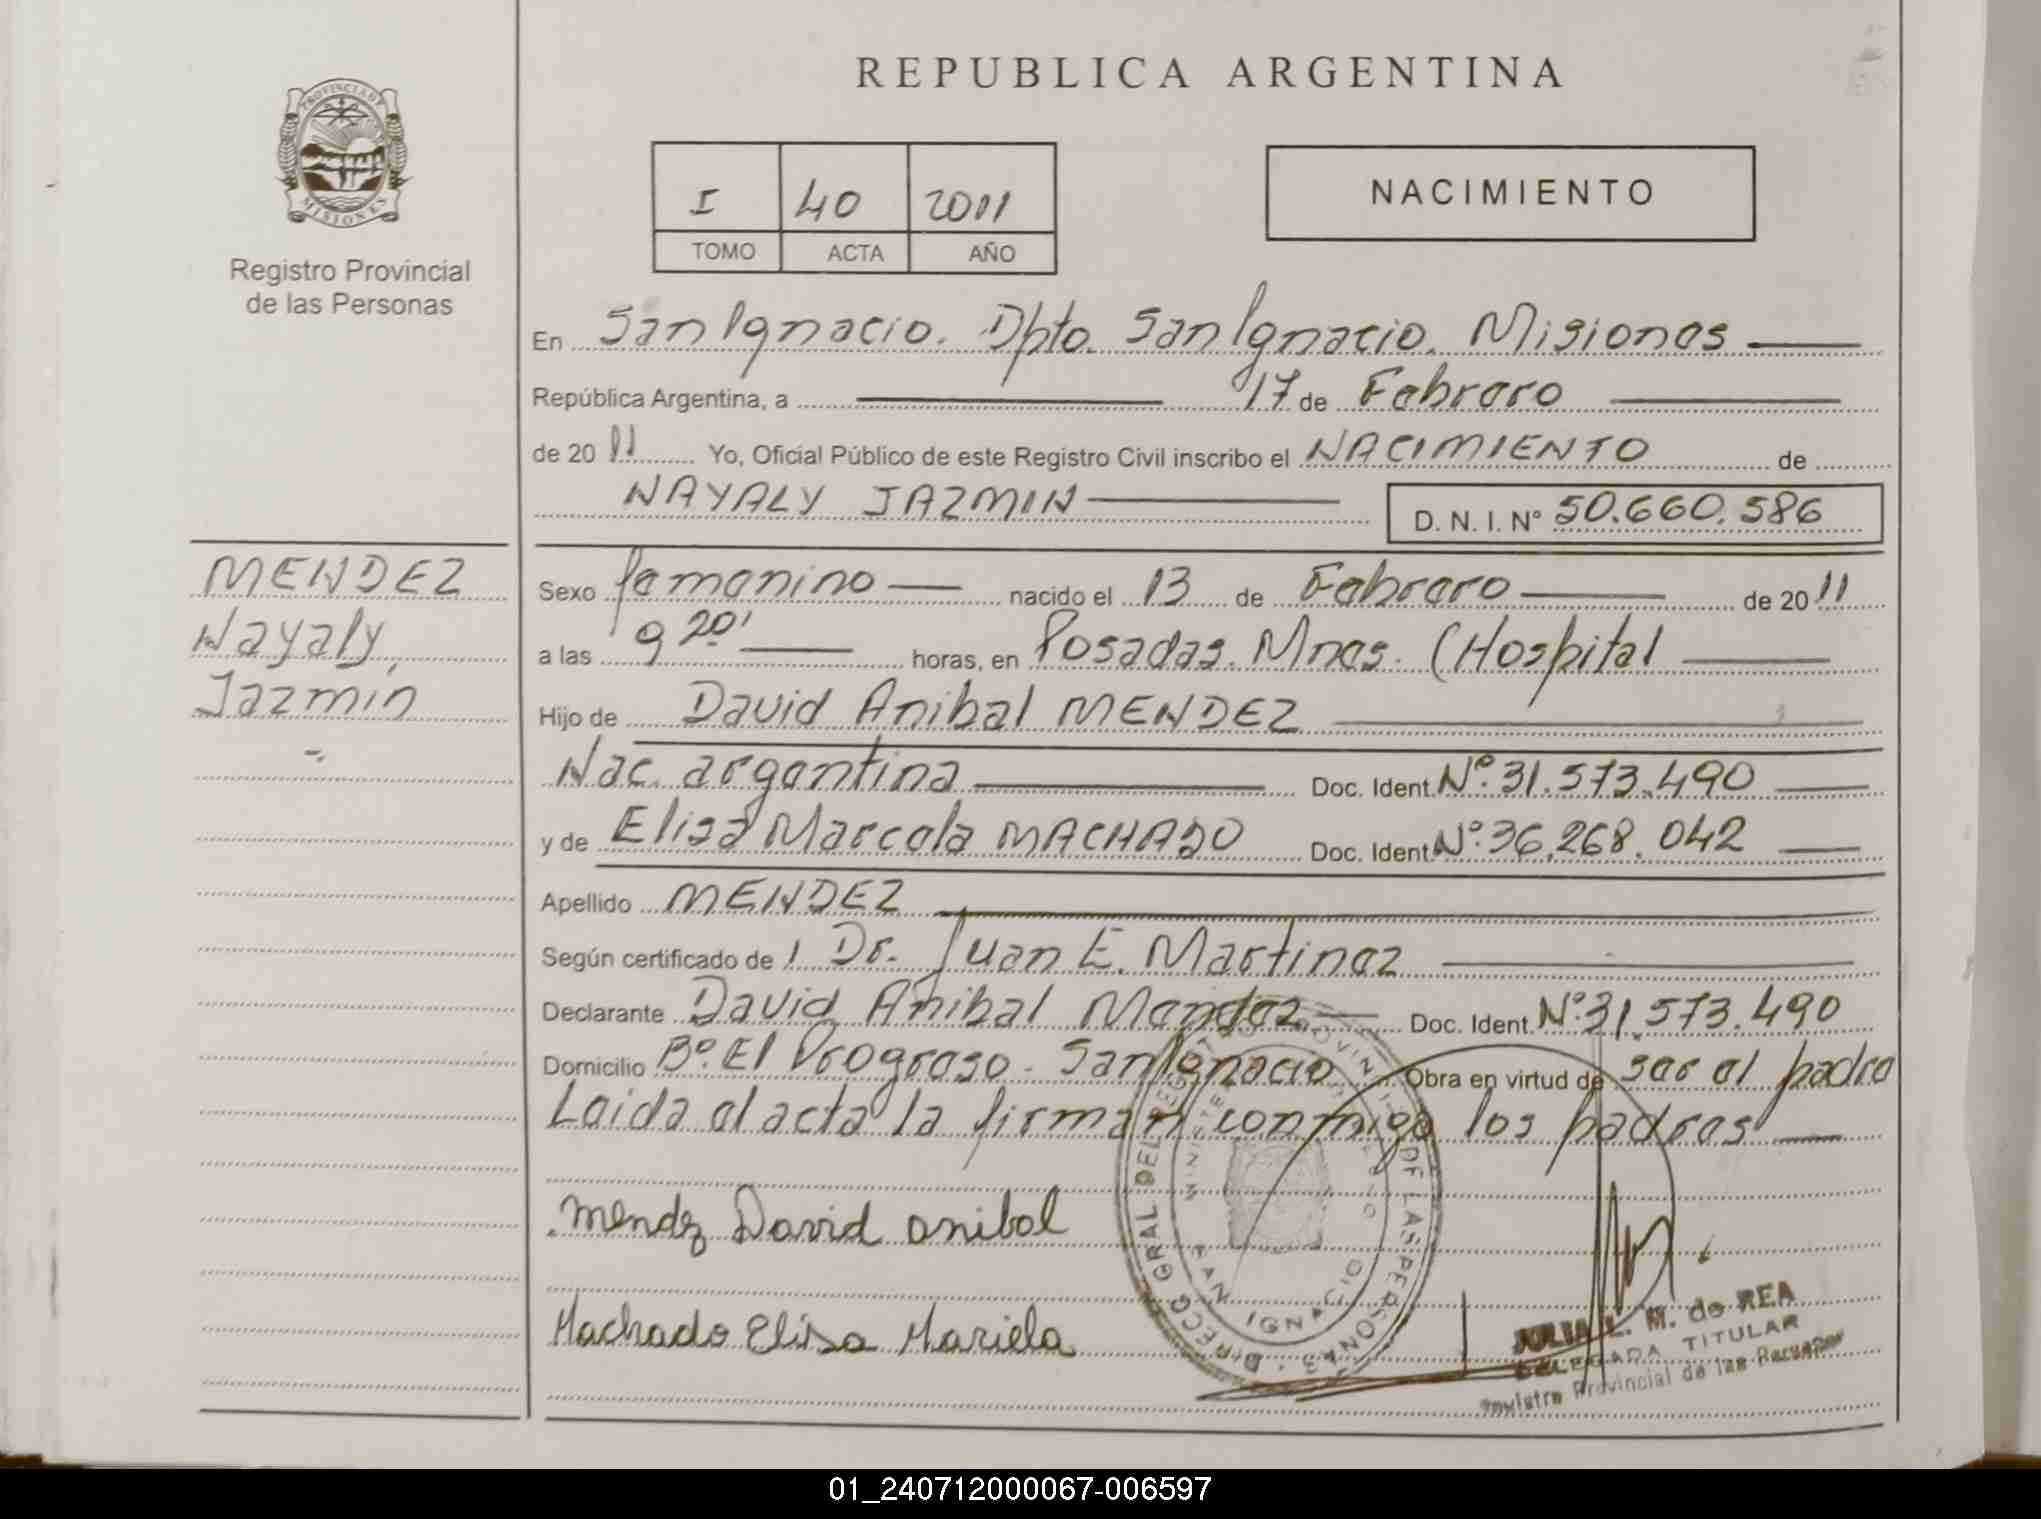 REPUBLICA ARGENTINA
PROVINCIA DE MISIONES
Registro Provincial
de las Personas
I 40 2011
TOMO ACTA AÑO
NACIMIENTO
En San Ignacio. Dpto. San Ignacio. Misiones
República Argentina, a 17 de Febrero
de 2011 Yo, Oficial Público de este Registro Civil inscribo el NACIMIENTO de
NAYALY JAZMIN D. N. I. Nº 50.660.586
MENDEZ
Nayaly
Jazmin
Sexo femenino nacido el 13 de Febrero de 2011
a las 9 20' horas, en Posadas. Mnes. (Hospital
Hijo de David Anibal MENDEZ
Nac. argentina Doc. Ident. Nº. 31.573.490
y de Elisa Marcela MACHADO Doc. Ident. Nº. 36.268.042
Apellido MENDEZ
Según certificado de l Dr. Juan E. Martinez
Declarante David Anibal Mendez Doc. Ident. Nº. 31.573.490
Domicilio Bº. El Progreso - San Ignacio Obra en virtud de ser el padre
Leida el acta la firman conmigo los padres
Mendez David anibal
Machado Elisa Mariela
DIRECC GRAL DEL REGISTRO PROVINCIAL DE LAS PERSONAS
SAN IGNACIO
JULIA L. M. de REA
DELEGADA TITULAR
Registro Provincial de las Personas
01_240712000067-006597